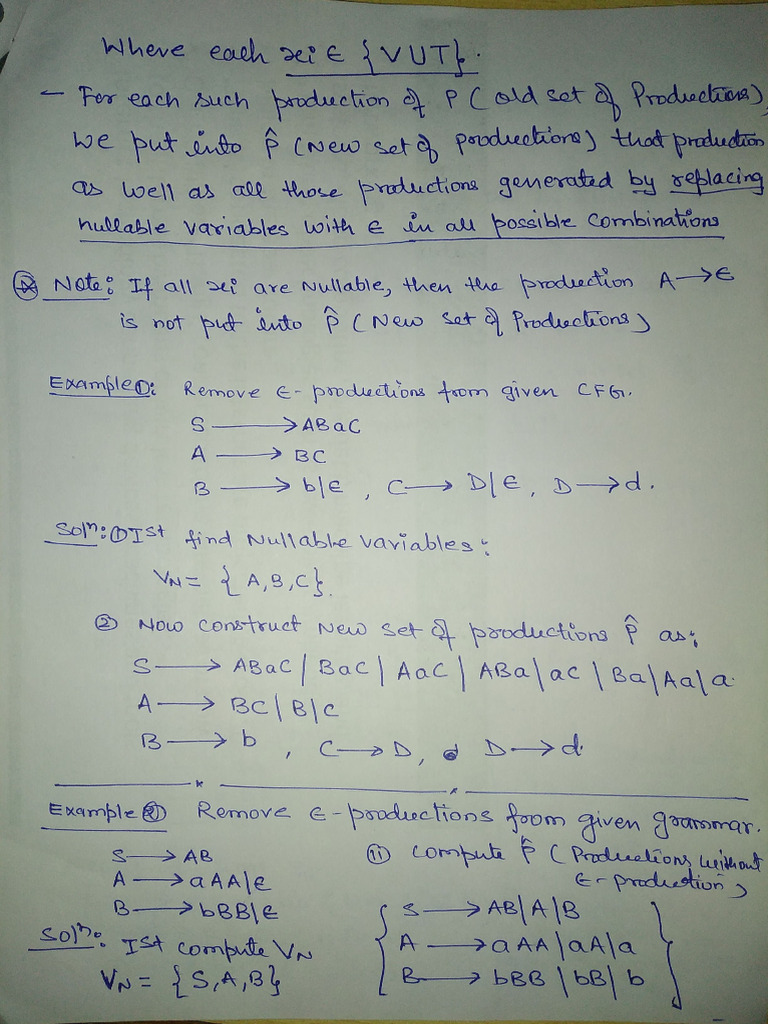 Where each xi ∈ {VUT}.
- For each such production of P (old set of Productions),
we put into P̂ (New set of productions) that production
as well as all those productions generated by replacing
nullable variables with ∈ in all possible combinations
Note: If all xi are Nullable, then the production A→∈
is not put into P̂ (New set of Productions)
Example①: Remove ∈-productions from given CFG.
S → ABaC
A → BC
B → b|∈ , C → D|∈, D → d.
Solⁿ: ① Ist find Nullable variables:
VN = {A,B,C}.
② Now construct New set of productions P̂ as;
S → ABaC | BaC | AaC | ABa | aC | Ba | Aa | a.
A → BC | B | C
B → b , C → D, D → d.
Example② Remove ∈-productions from given grammar.
S → AB
A → aAA|∈
B → bBB|∈
Solⁿ: Ist compute VN
VN = {S,A,B}
(ii) compute P̂ (Productions without
∈-production)
S → AB|A|B
A → aAA|aA|a
B → bBB|bB|b